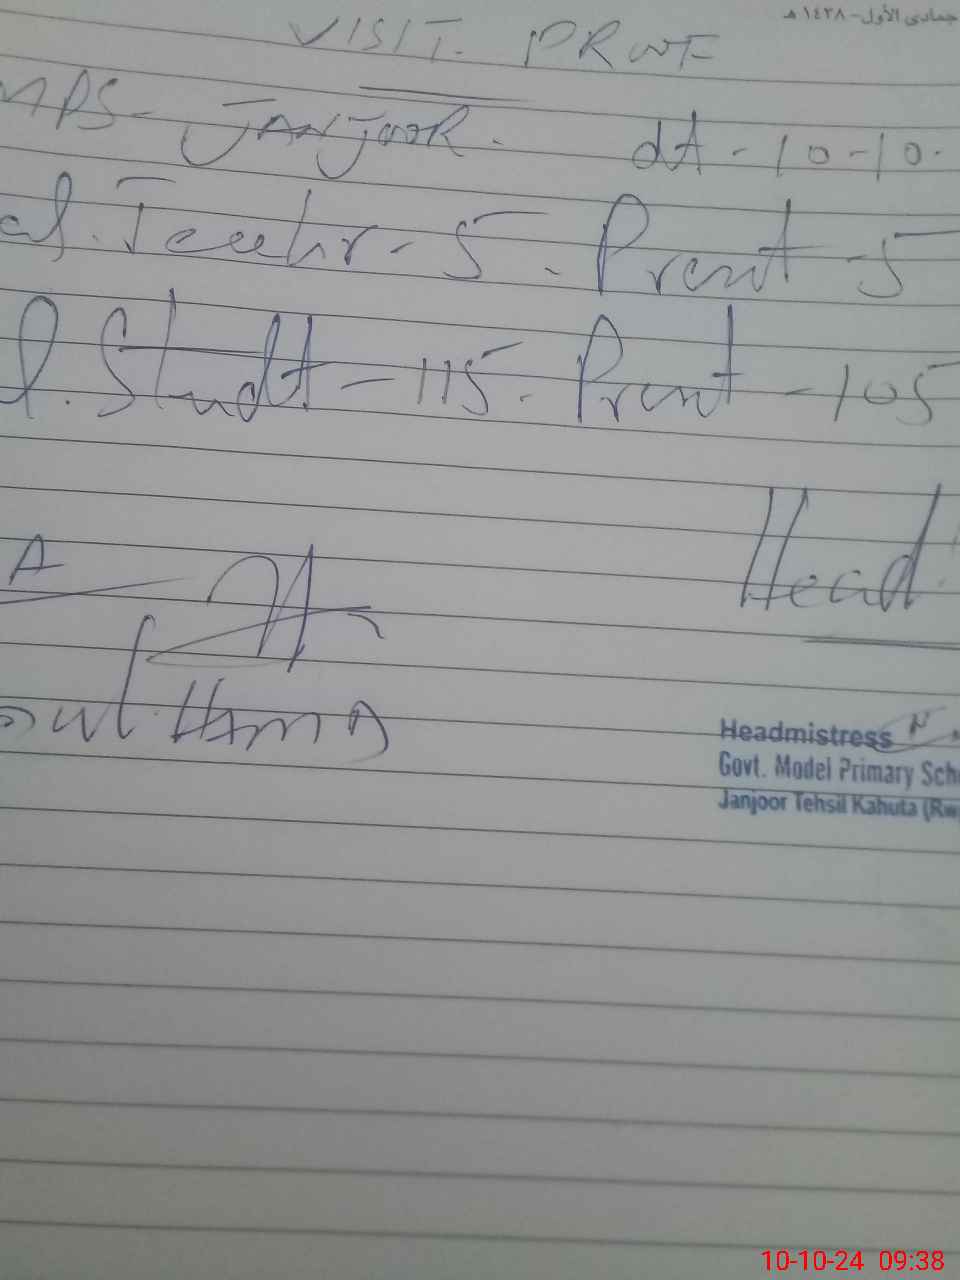 جمادى الأول - ١٤٣٨ هـ
VISIT. PROOF
MPS - JANJOOR. dt - 10-10.
al. Teachr - 5. Presnt - 5
l. Studt - 115. Presnt - 105
A
Head
Headmistress
Govt. Model Primary Sch
Janjoor Tehsil Kahuta (Rw
10-10-24 09:38